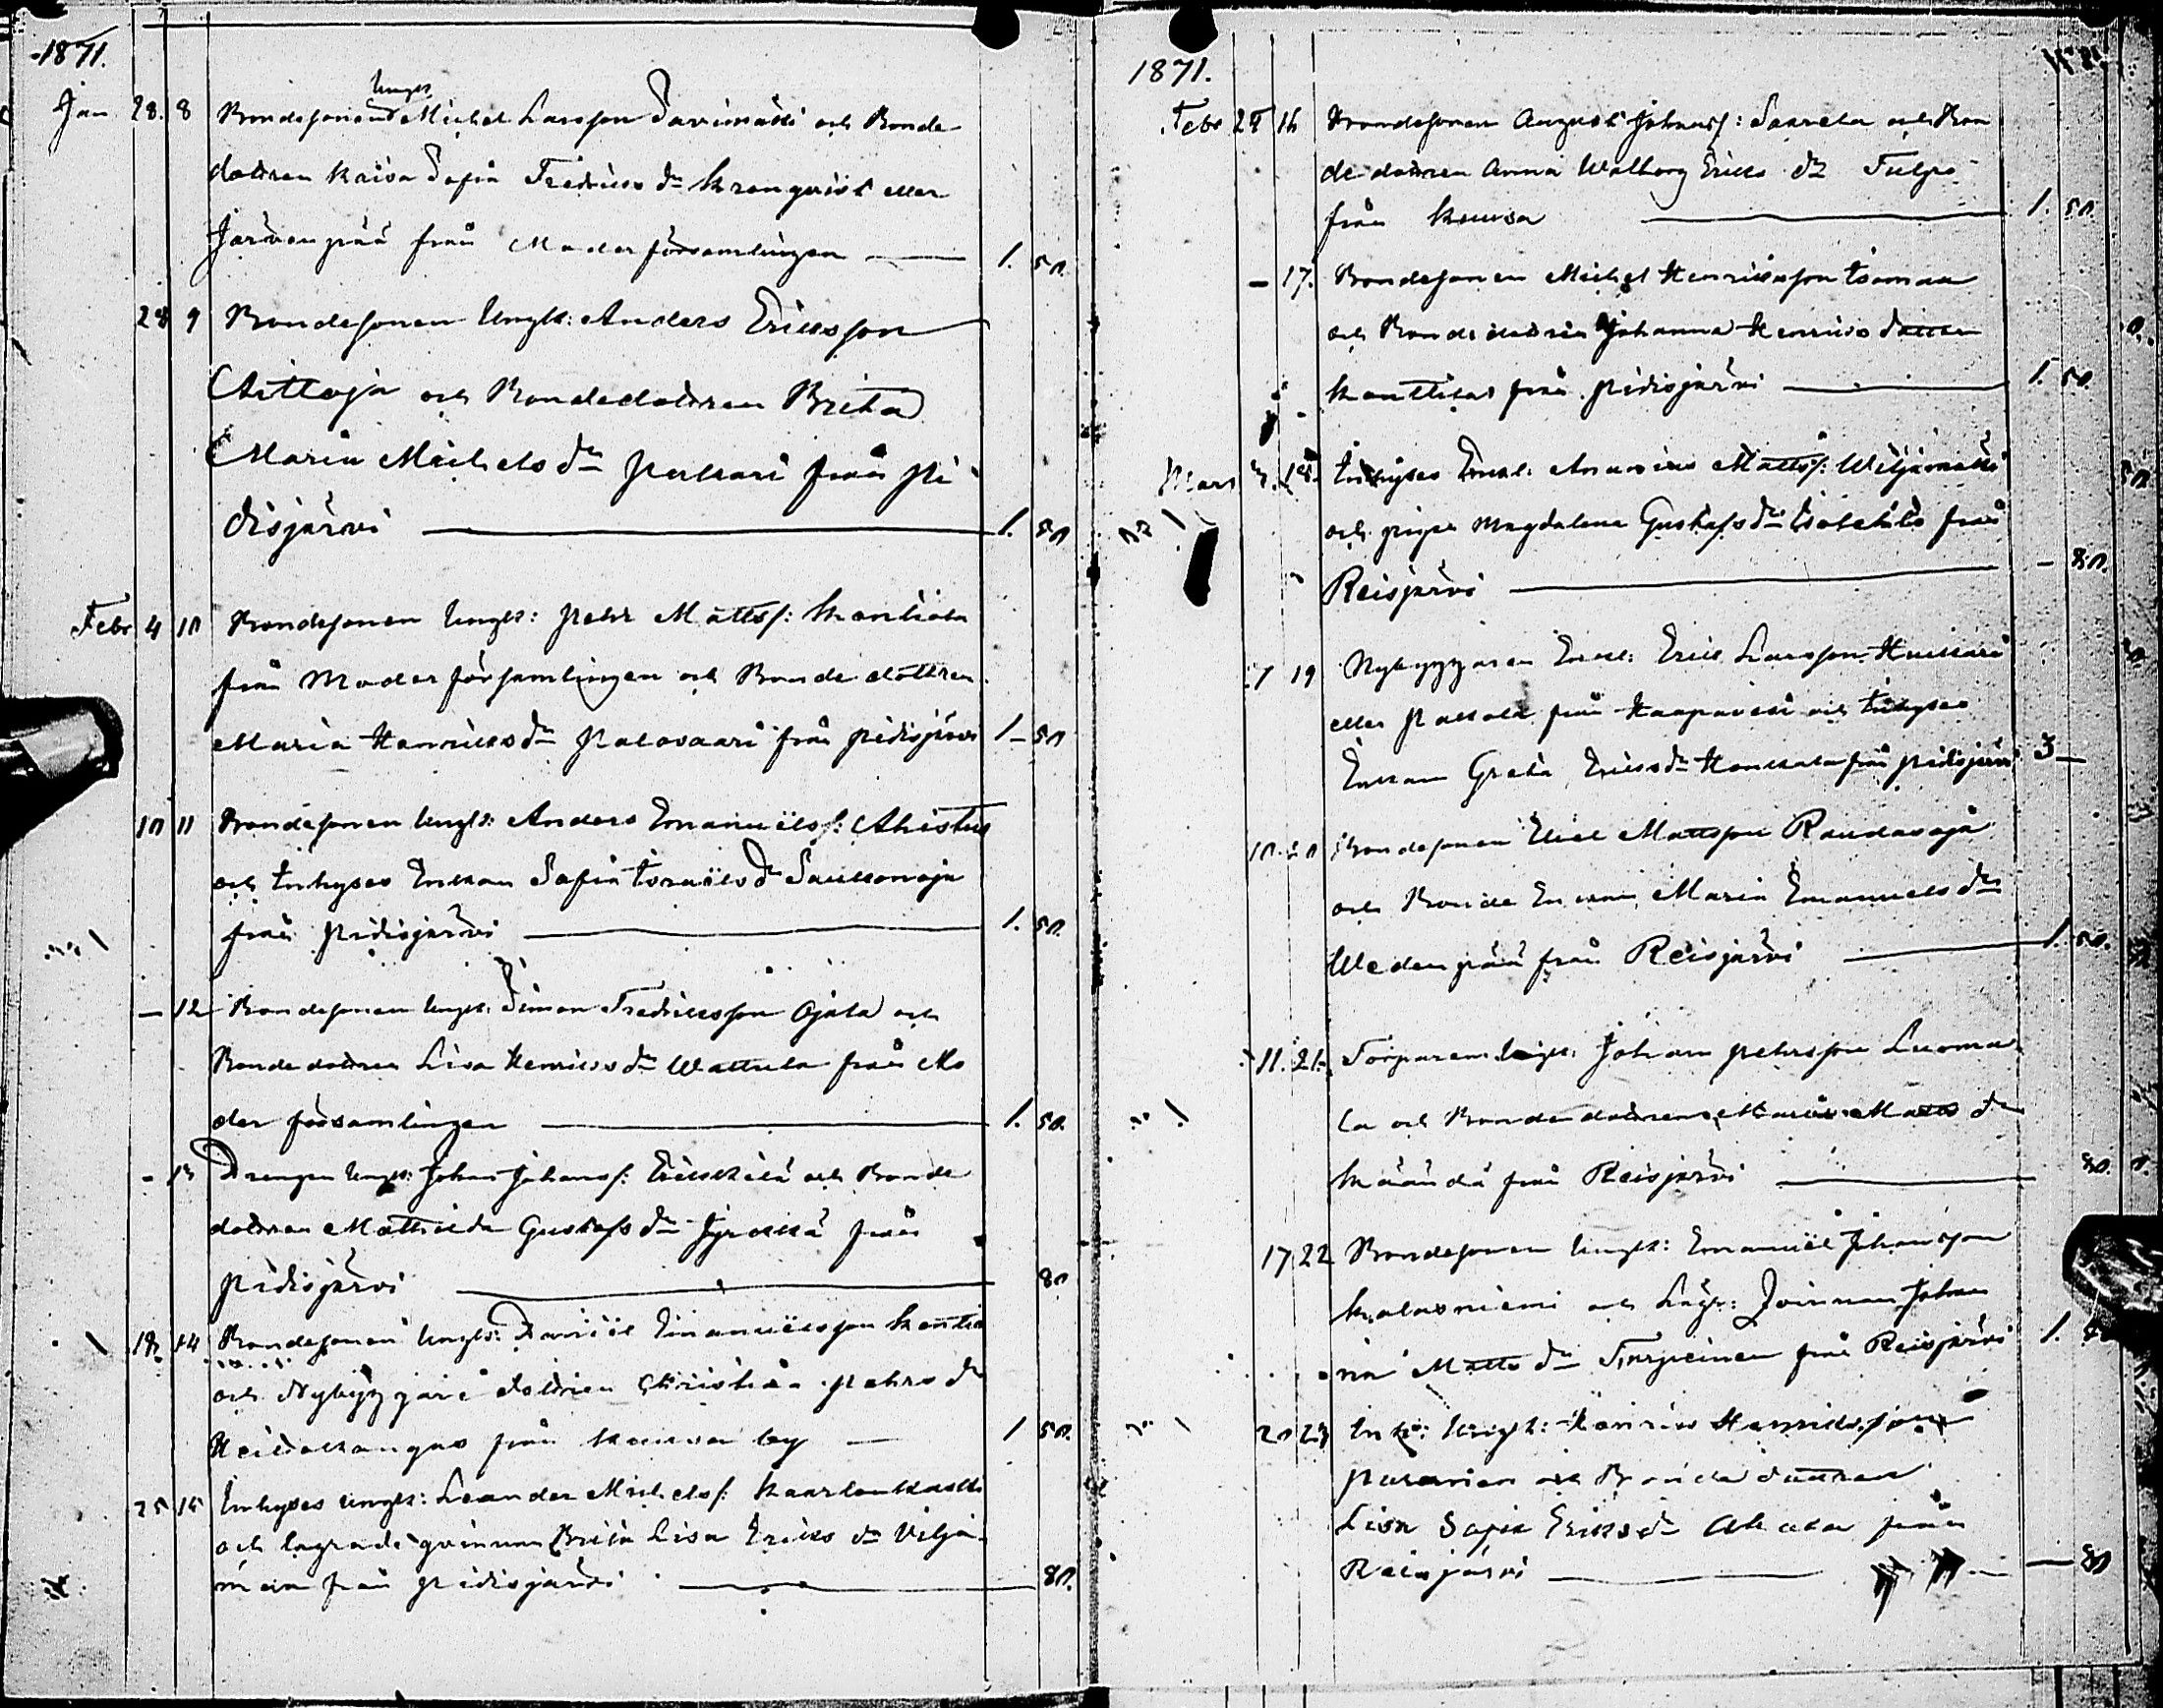 1871.
Jan 28. 8 Bondesonen Ungk. Michel Larsson Savimäki och Bonde
dottren Kaisa Sofia Fredriks dr Kronqvist eller
Järvenpää från Moderförsamlingen — 1. 50.
28 9 Bondesonen Ungk: Anders Eriksson
Aittoja och Bondedottren Brita
Maria Michels dr Pekkari från Pi
disjärvi — 1. 50
Febr 4 10 Bondesonen Ungk: Petr Matts s:
från Moderförsamlingen och Bondedottren
Maria Henriks dr Palosaari från Pidisjärvi 1 — 50
10 11 Bondesonen Ungk: Anders Emanuels s: Ahistus
och Inhyses Enkan Sofia Israels dr Saukonoja
från Pidisjärvi — 1. 50.
— 12 Bondesonen Ungk. Simon Fredriksson Ojala och
Bondedottren Lisa Henriks dr Wattula från Mo
derförsamlingen — 1. 50.
- 13 Drengen Ungk: Johan Johans s: Erikkilä och Bonde
dottren Mathilda Gustafs dr Jyrkkä från
Pidisjärvi — 80
18 14 Bondesonen Ungk: Daniel Emanuelsson
och Nybyggare dottren Christina Pehrs dr
Keidaskangas från by — 1 50.
25 15 Inhyses Ungk: Leander Michels s.
och lägrade qvinnan Brita Lisa Eriks dr Vilja
maa från Pidisjärvi — 80.
1871.
Febr 24 16 Bondesonen August Johans s: Saarela och Bon
dedottren Anna Walborg Eriks dr Tulpo
från — 1. 50.
— 17. Bondesonen Michel Henriksson Isomaa
och Bondedottren Johanna Henriks dotter
Konttila från Pidisjärvi — 1. 50.
Mars 18. Inhyses Enkl. Ananias Matts s: Wiljamäki
och pigan Magdalena Gustafs dr Isotalo från
Reisjärvi — 80.
7 19 Nybyggaren Enkl: Erik Larsson Huikari
eller Pakkala från Haapavesi och Inhyses
Enkan Greta Eriks dr från Pidisjärvi 3 —
10. 20 Bondesonen Eliel Mattsson Raudasoja
och Bonde Enkan Maria Emanuels dr
Wedenpää från Reisjärvi — 1. 50.
11. 21. Torparen Ungk: Johan Pehrsson Luoma
la och Bondedottren Maria Matts dr
Kääntä från Reisjärvi — 80.
17 22 Bondesonen Ungk: Emanuel Johansson
Kalasniemi och Lägr: Qvinnan Johan
na Matts dr Turpeinen från Reisjärvi 1.
20 23 Inh: Ungk: Henrik Henriksson
och Bondedottren
Lisa Sofia Eriks dr Ahola från
Reisjärvi — 80